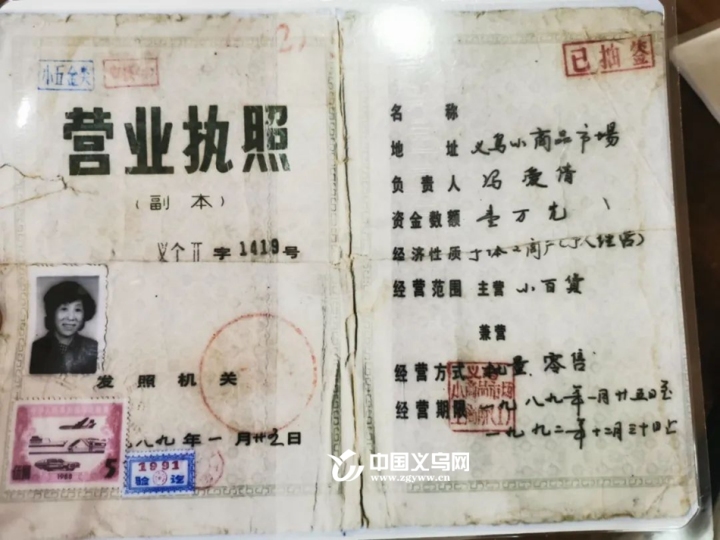 小百货类
营业执照
(副本)
字1419号
发照机关
一九八九年一月廿五日
5
1988
1991
验讫
已抽签
名称
地址 义乌小商品市场
负责人 冯爱倩
资金数额 壹万元
经济性质 个体工商户(个人经营)
经营范围 主营 小百货
兼营
经营方式 批量零售
经营期限 一九八九年一月廿五日至
一九九二年十二月三十日止
中国义乌网
www.zgyww.cn